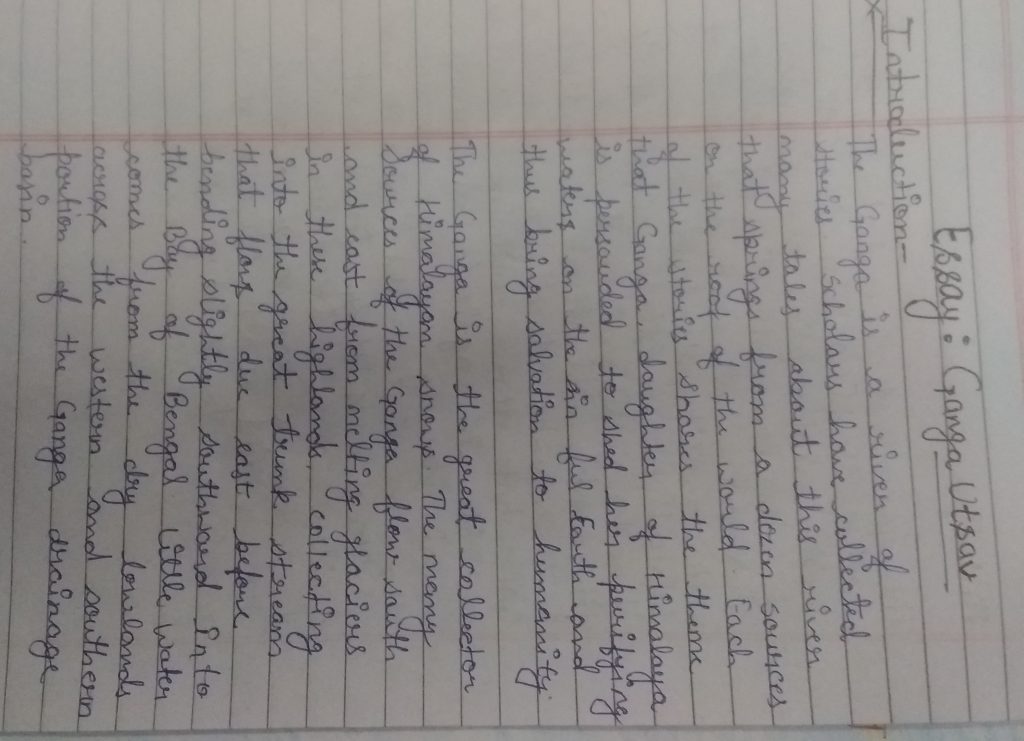 Essay: Ganga Utsav
x Introduction-
The Ganga is a river of
stories Scholars have collected
many tales about this river
that springs from a dozen sources
on the roof of the would Each
of the stories shares the theme
that Ganga, daughter of Himalaya
is persuaded to shed her purifying
waters on the sin ful Earth and
thus bring salvation to humanity.
The Ganga is the great collector
of Himalayan snows. The meny
Sources of the Ganga flow south
and east from melting glaciers
in these highlands, collecting
into the great trunk stream
that flows due east before
bending slightly southward into
the Bay of Bengal Little water
comes from the dry lowlands
across the western and southern
portion of the Ganga drainage
basin.